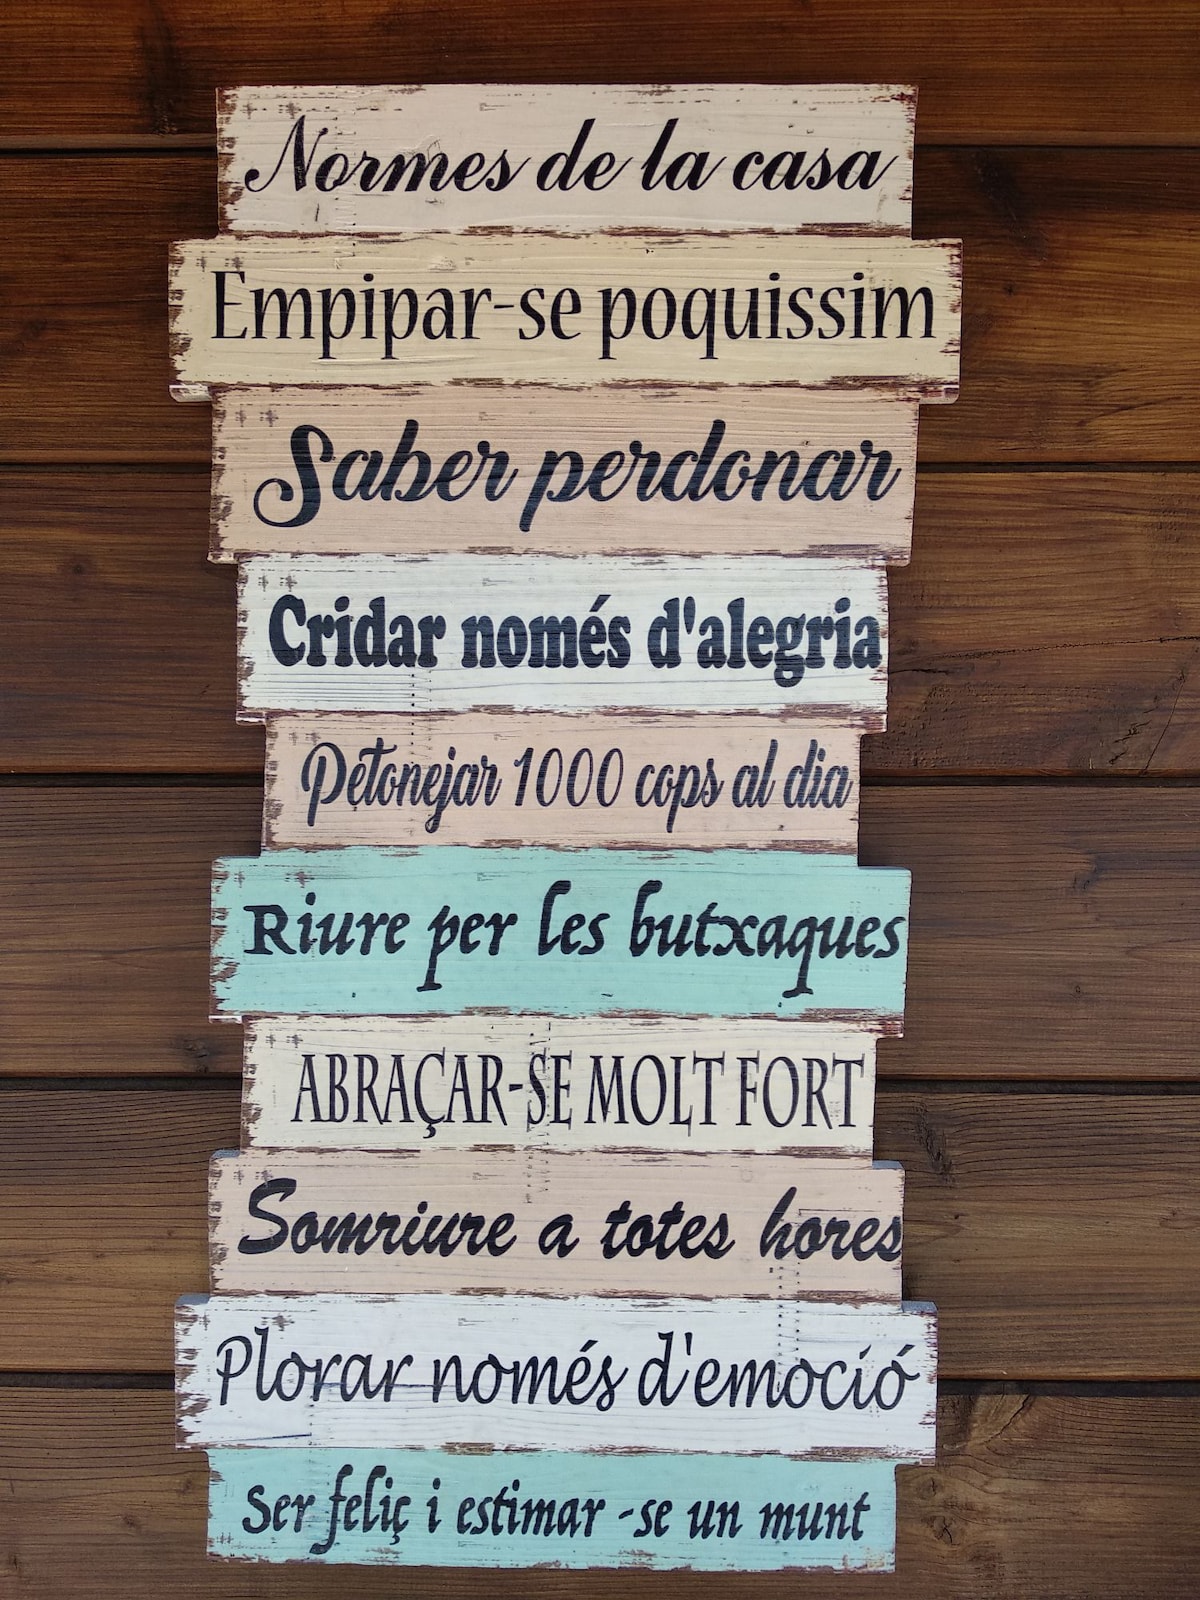 Normes de la casa
Empipar-se poquissim
Saber perdonar
Cridar només d'alegria
Petonejar 1000 cops al dia
Riure per les butxaques
ABRAÇAR-SE MOLT FORT
Somriure a totes hores
Plorar només d'emoció
Ser feliç i estimar -se un munt